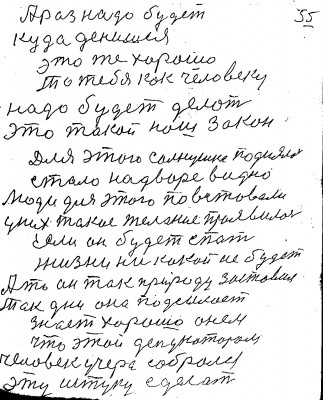 А раз надо будет 55
куда денишся
это же хорошо
То тебя как человеку
надо будет делот
Это такой нош закон
Для этого солнушке поднялос
стало надворе видно
Люди для этого повставали
уних такое желание проявилос
Если он будет спат
жизни ни какой не будет
Ато он так природу заставил
Так дни она подсилает
знает хорошо онем
что этой депутотом
человек учера собролся
эту штуку сделат